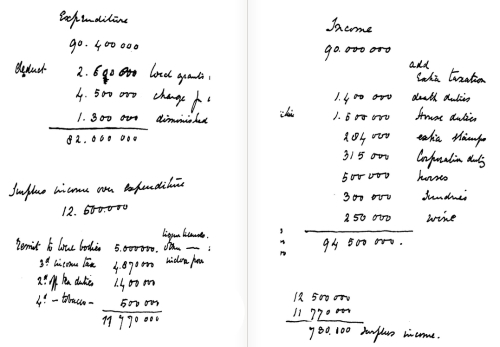 Expenditure
90.400000
Deduct 2.600000 local grants
4.500000 change
1.300000 diminished
82.000000
Surplus income over expenditure
12.500.000
Remit to local bodies 5.000000. liquor licences.
3d income tax 4.870000
2d off tea duties 1.400000
4d – tobacco – 500000
11770000
Income
90.000000
add
Extra taxation
1.400000 death duties
1.600000 House duties
284000 extra stamps
315000 Corporation duty
500000 horses
300000 Sundries
250000 wine
94500000.
12500000
11770000
730.000 surplus income.